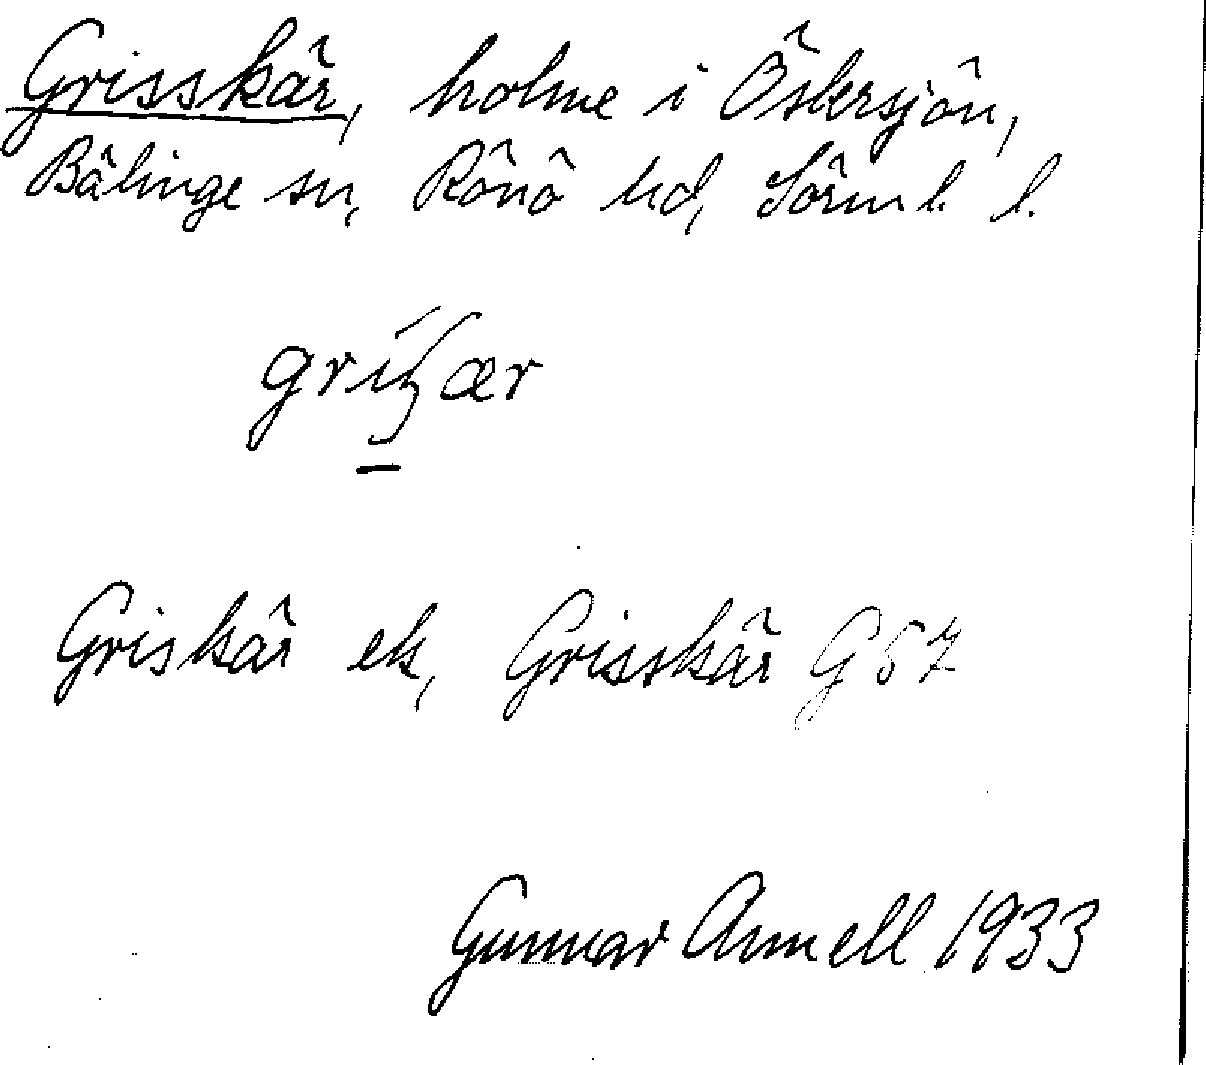 Grisskär, holme i Östersjön,
Bälinge sn, Rönö hd, Sörml. l.
Griskär ek, Grisskär G57
Gunnar Annell 1933